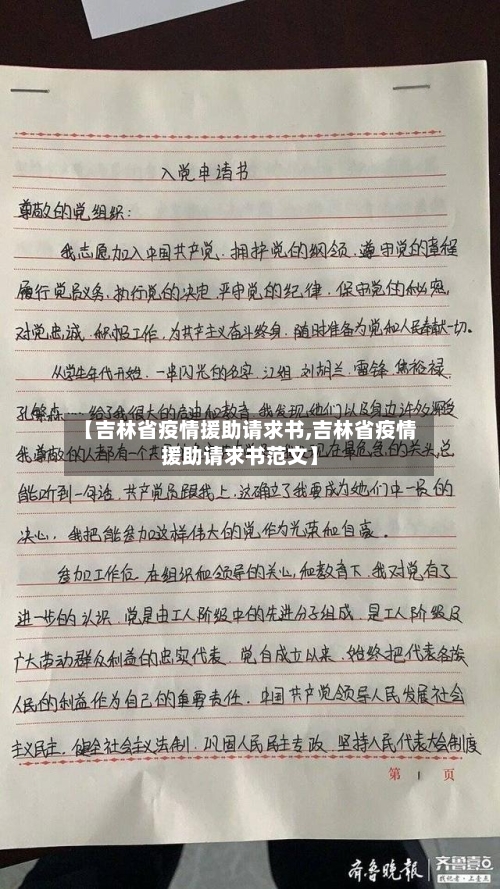 入党申请书
尊敬的党组织：
我志愿加入中国共产党，拥护党的纲领，遵守党的章程
履行党员义务，执行党的决定，严守党的纪律，保守党的秘密，
对党忠诚，积极工作，为共产主义奋斗终身，随时准备为党和人民奉献一切。
从学生年代开始，一串闪光的名字，江姐 刘胡兰，雷锋，焦裕禄，
孔繁森……给了我很大的启迪和教育。我发现她们以及身边许多深受
【吉林省疫情援助请求书,吉林省疫情
我尊敬的人都有一个共
在最危急的关头,总
援助请求书范文】
能听到一句话，共产党员跟我上，这确立了我要成为她们中一员的
决心，我把能参加这样伟大的党作为光荣和自豪。
参加工作后，在组织和领导的关心,和教育下，我对党有了
进一步的认识，党是由工人阶级中的先进分子组成，是工人阶级及
广大劳动群众利益的忠实代表，党自成立以来，始终把代表各族
人民的利益作为自己的重要责任，中国共产党领导人民发展社会
主义民主，健全社会主义法制，巩固人民民主专政，坚持人民代表大会制度
第 1 页
齐鲁晚报
齐鲁壹点